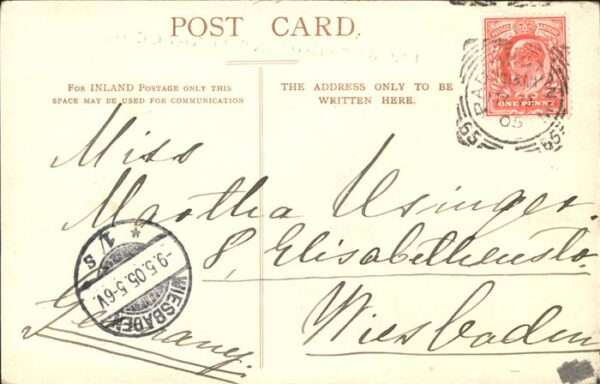 POST CARD.
FOR INLAND POSTAGE ONLY THIS
SPACE MAY BE USED FOR COMMUNICATION
THE ADDRESS ONLY TO BE
WRITTEN HERE.
POSTAGE REVENUE
ONE PENNY
65
65
05
Miss
Martha Usinger.
8, Elisabethenstr.
Wiesbaden
Germany.
1/ S
-9.5.05.5-6V.
WIESBADEN